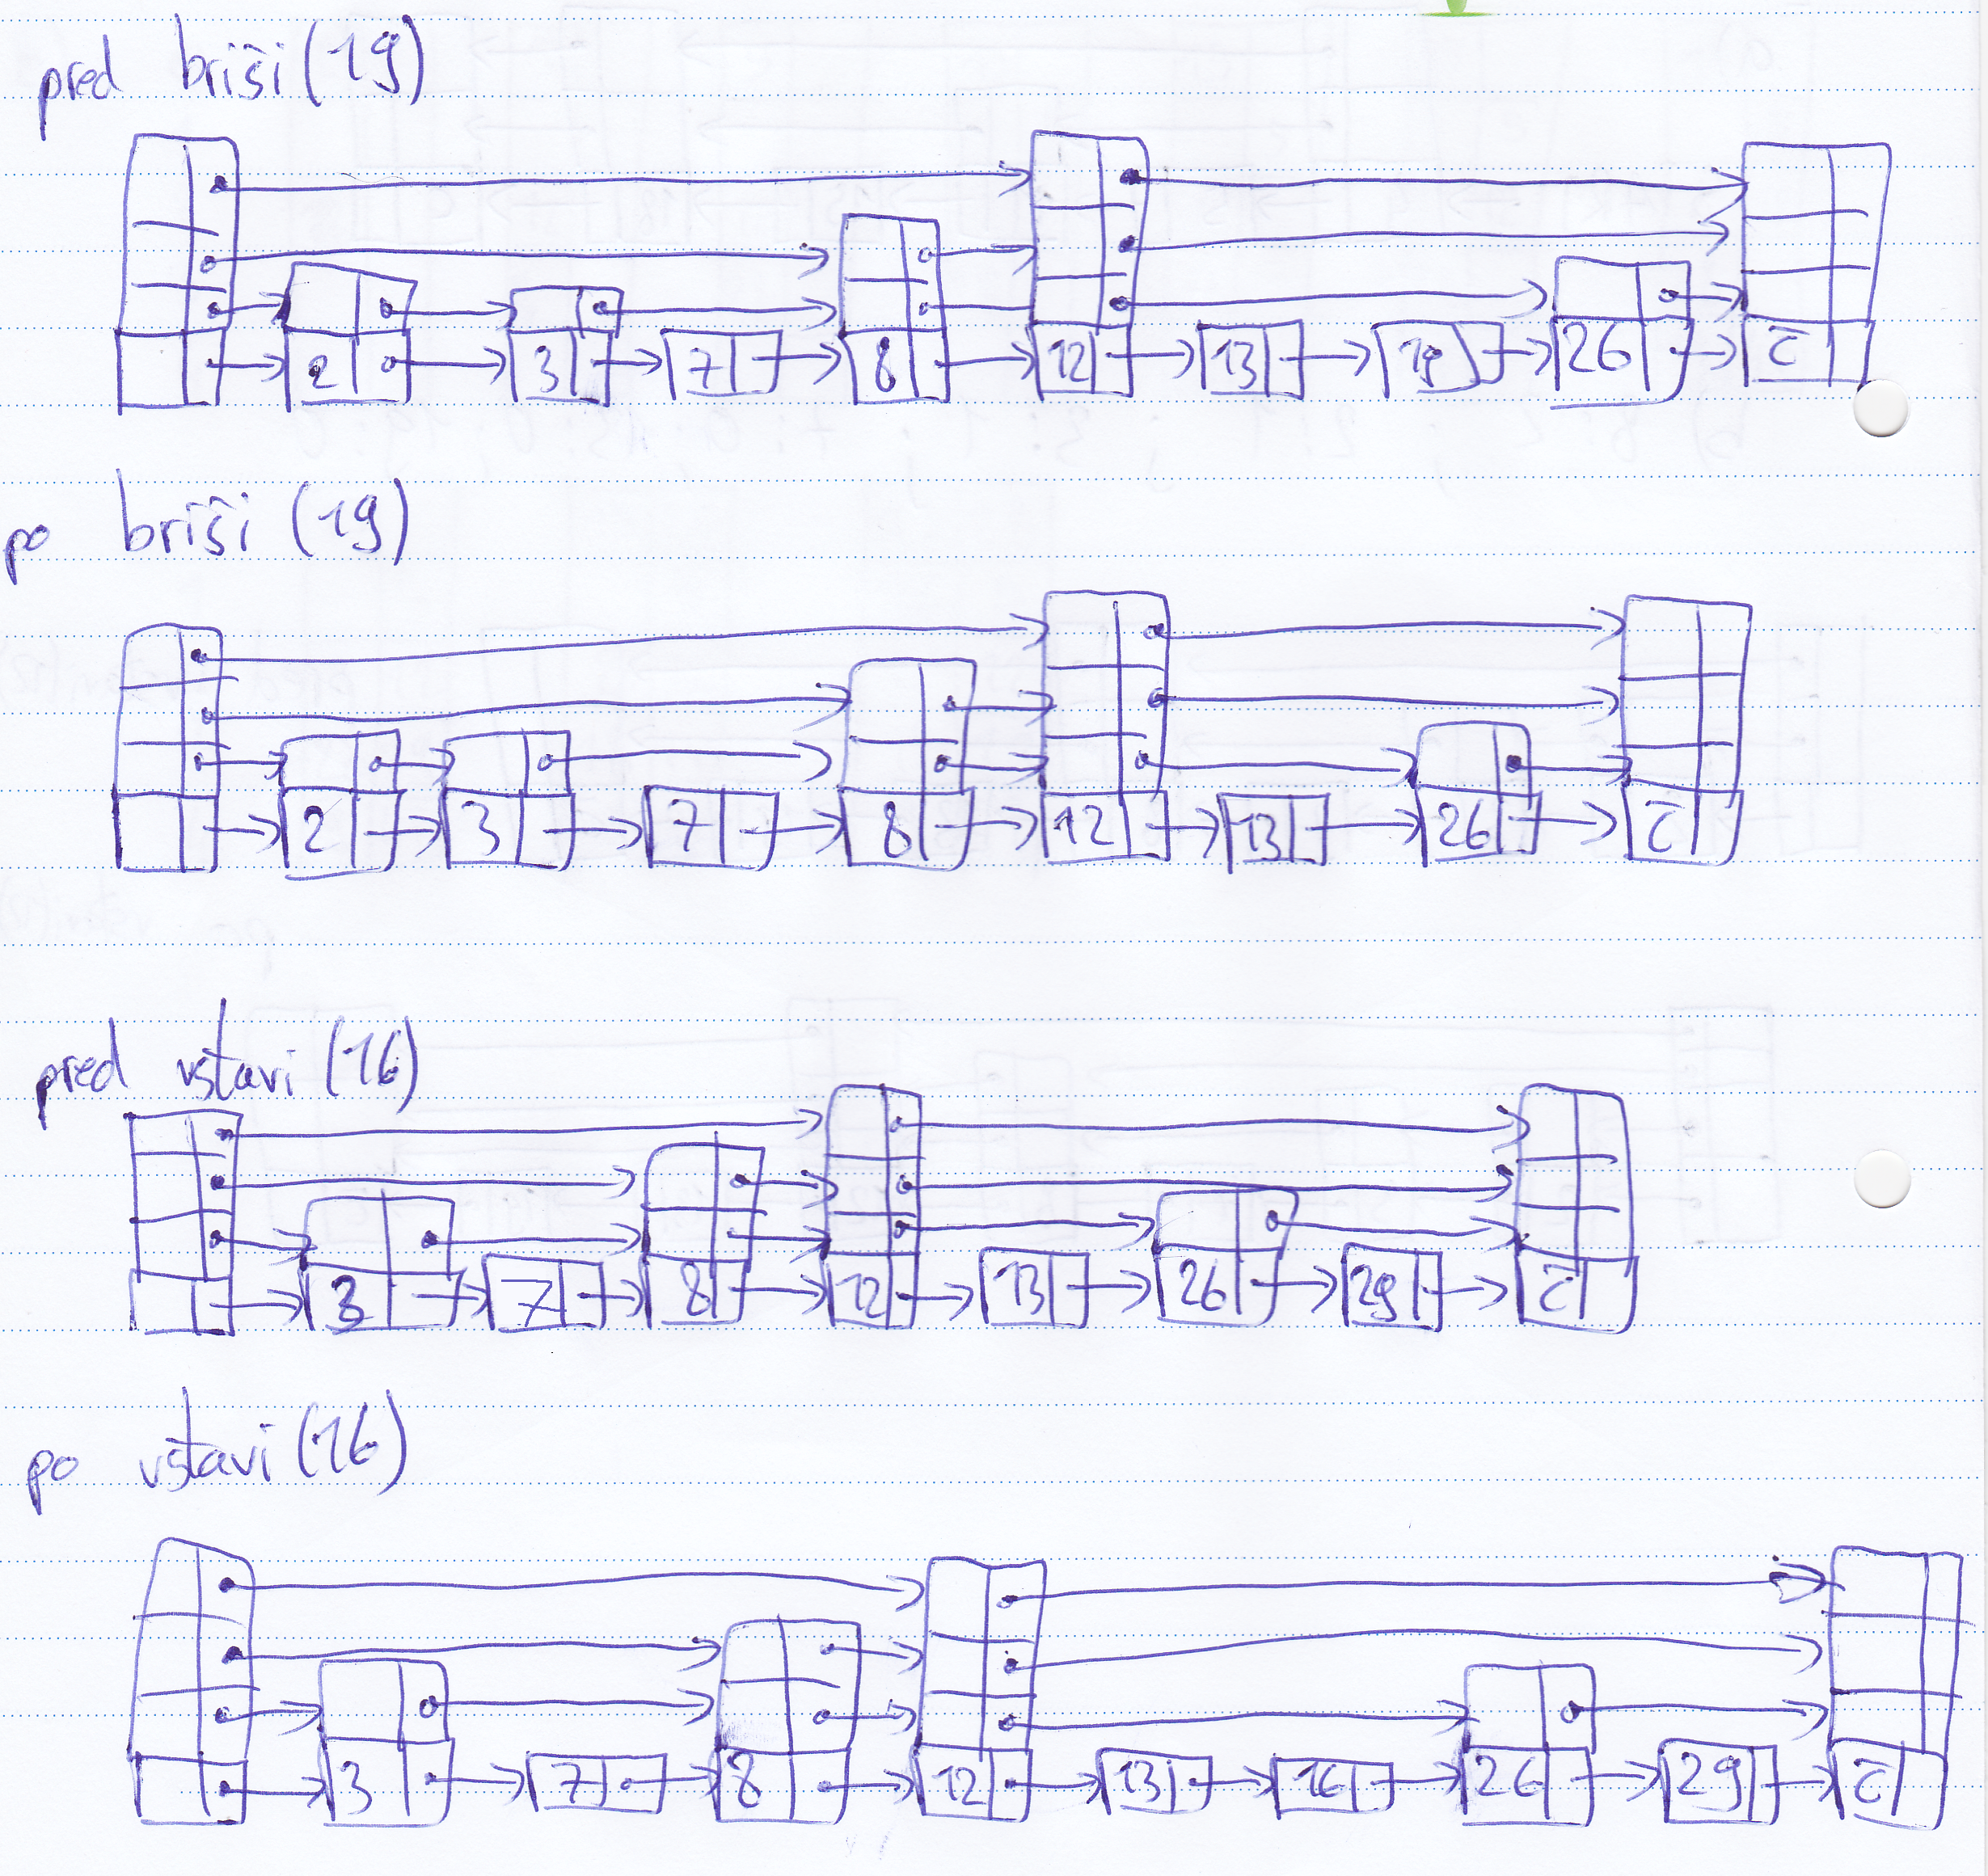 pred briši (19)
2 3 7 8 12 13 19 26 c
po briši (19)
2 3 7 8 12 13 26 c
pred vstavi (16)
3 7 8 12 13 26 29 c
po vstavi (16)
3 7 8 12 13 16 26 29 c